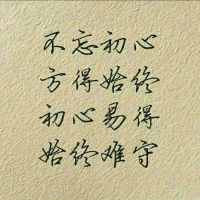 不忘初心
方得始终
初心易得
始终难守